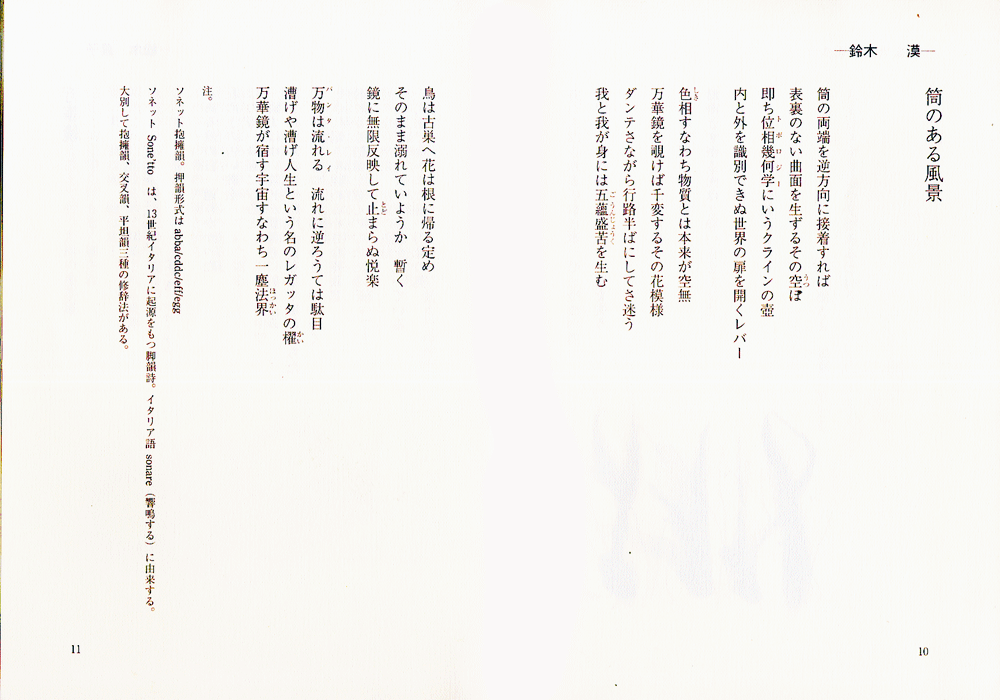 鈴木　漠
筒のある風景
筒の両端を逆方向に接着すれば
表裏のない曲面を生ずるその空ぽ
即ち位相幾何学にいうクラインの壺
内と外を識別できぬ世界の扉を開くレバー
色相すなわち物質とは本来が空無
万華鏡を覗けば千変するその花模様
ダンテさながら行路半ばにしてさ迷う
我と我が身には五蘊盛苦を生む
鳥は古巣へ花は根に帰る定め
そのまま溺れていようか　暫く
鏡に無限反映して止まらぬ悦楽
万物は流れる　流れに逆ろうては駄目
漕げや漕げ人生という名のレガッタの櫂
万華鏡が宿す宇宙すなわち一塵法界
注。
ソネット抱擁韻。押韻形式は abba/cddc/eff/egg
ソネット Sone'tto は、13世紀イタリアに起源をもつ脚韻詩。イタリア語 sonare（響鳴する）に由来する。
大別して抱擁韻、交叉韻、平坦韻三種の修辞法がある。
10
11